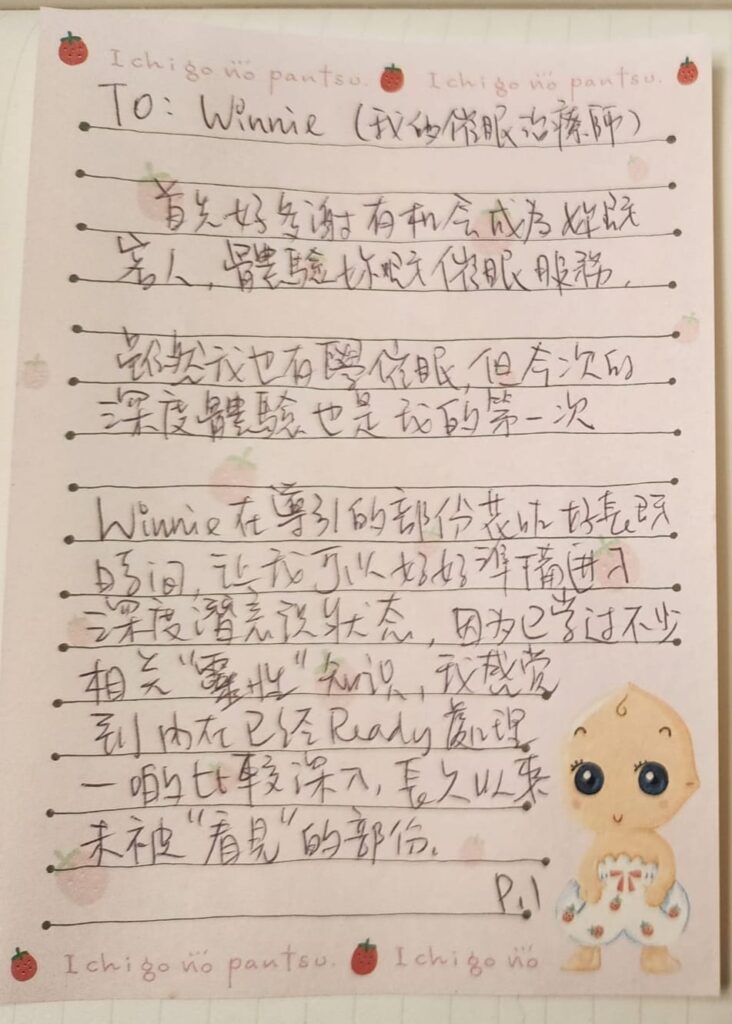 Ichigo no pantsu. Ichigo no pantsu.
TO: Winnie (我的催眠治療師)
首先好多謝有机会成為妳既
客人,體驗妳既催眠服務.
雖然我也有學催眠,但今次的
深度體驗也是我的第一次
Winnie在導引的部份花咗好長既
時间,让我可以好好準備進入
深度潛意识狀态,因为已学过不少
相关"靈性"知识,我感觉
到内在已经Ready處理
一啲比較深入,長久以來
未被"看見"的部份.
P.1
Ichigo no pantsu. Ichigo no